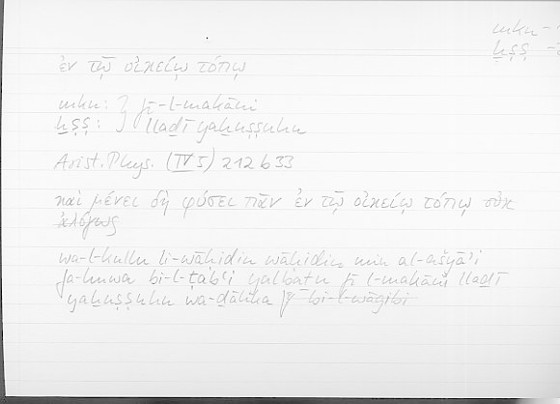 mkn -
ḫṣṣ -
ἐν τῷ οἰκείῳ τόπῳ
mkn: } fī-l-makāni
ḫṣṣ: } lladī yaḫuṣṣuhu
Arist. Phys. (IV 5) 212 b 33
καὶ μένει δὴ φύσει πᾶν ἐν τῷ οἰκείῳ τόπῳ οὐκ
ἀλόγως
wa-l-kullu li-wāḥidin wāḥidin min al-ašyāʾi
fa-huwa bi-l-ṭabʿi yalbaṯu fī l-makāni lladī
yaḫuṣṣuhu wa-ḏālika bi-l-wāǧibi